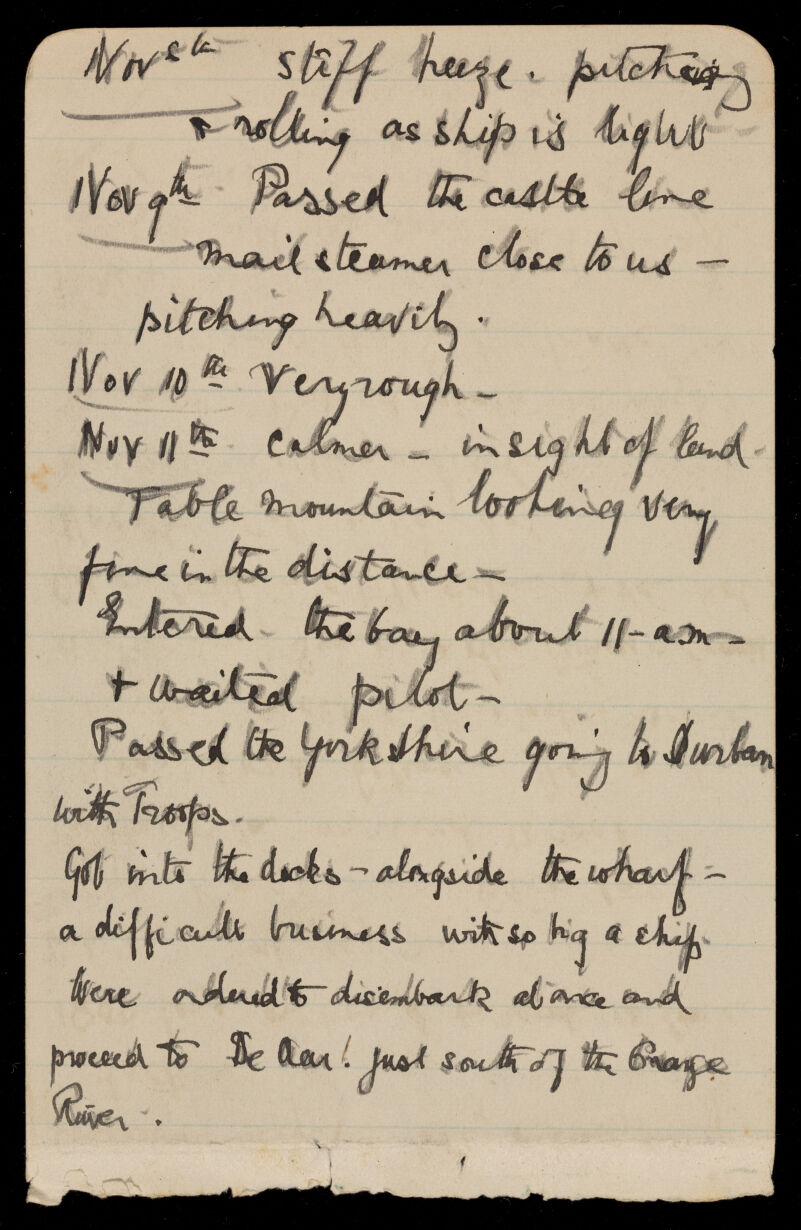 Nov 8th stiff breeze. pitching
& rolling as ship is light
Nov 9th Passed the castle line
mail steamer close to us —
pitching heavily.
Nov 10th Very rough —
Nov 11th calmer — in sight of land.
Table mountain looking very
fine in the distance —
Entered the bay about 11 - a.m —
& waited pilot —
Passed the Yorkshire going to Durban
with Troops.
Got into the docks — alongside the wharf —
a difficult business with so big a ship.
Were ordered to disembark at once and
proceed to De Aar! just south of the Orange
River.